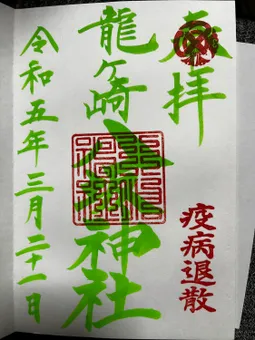 奉拝
疫病退散
龍ヶ崎
神社
令和五年三月二十一日